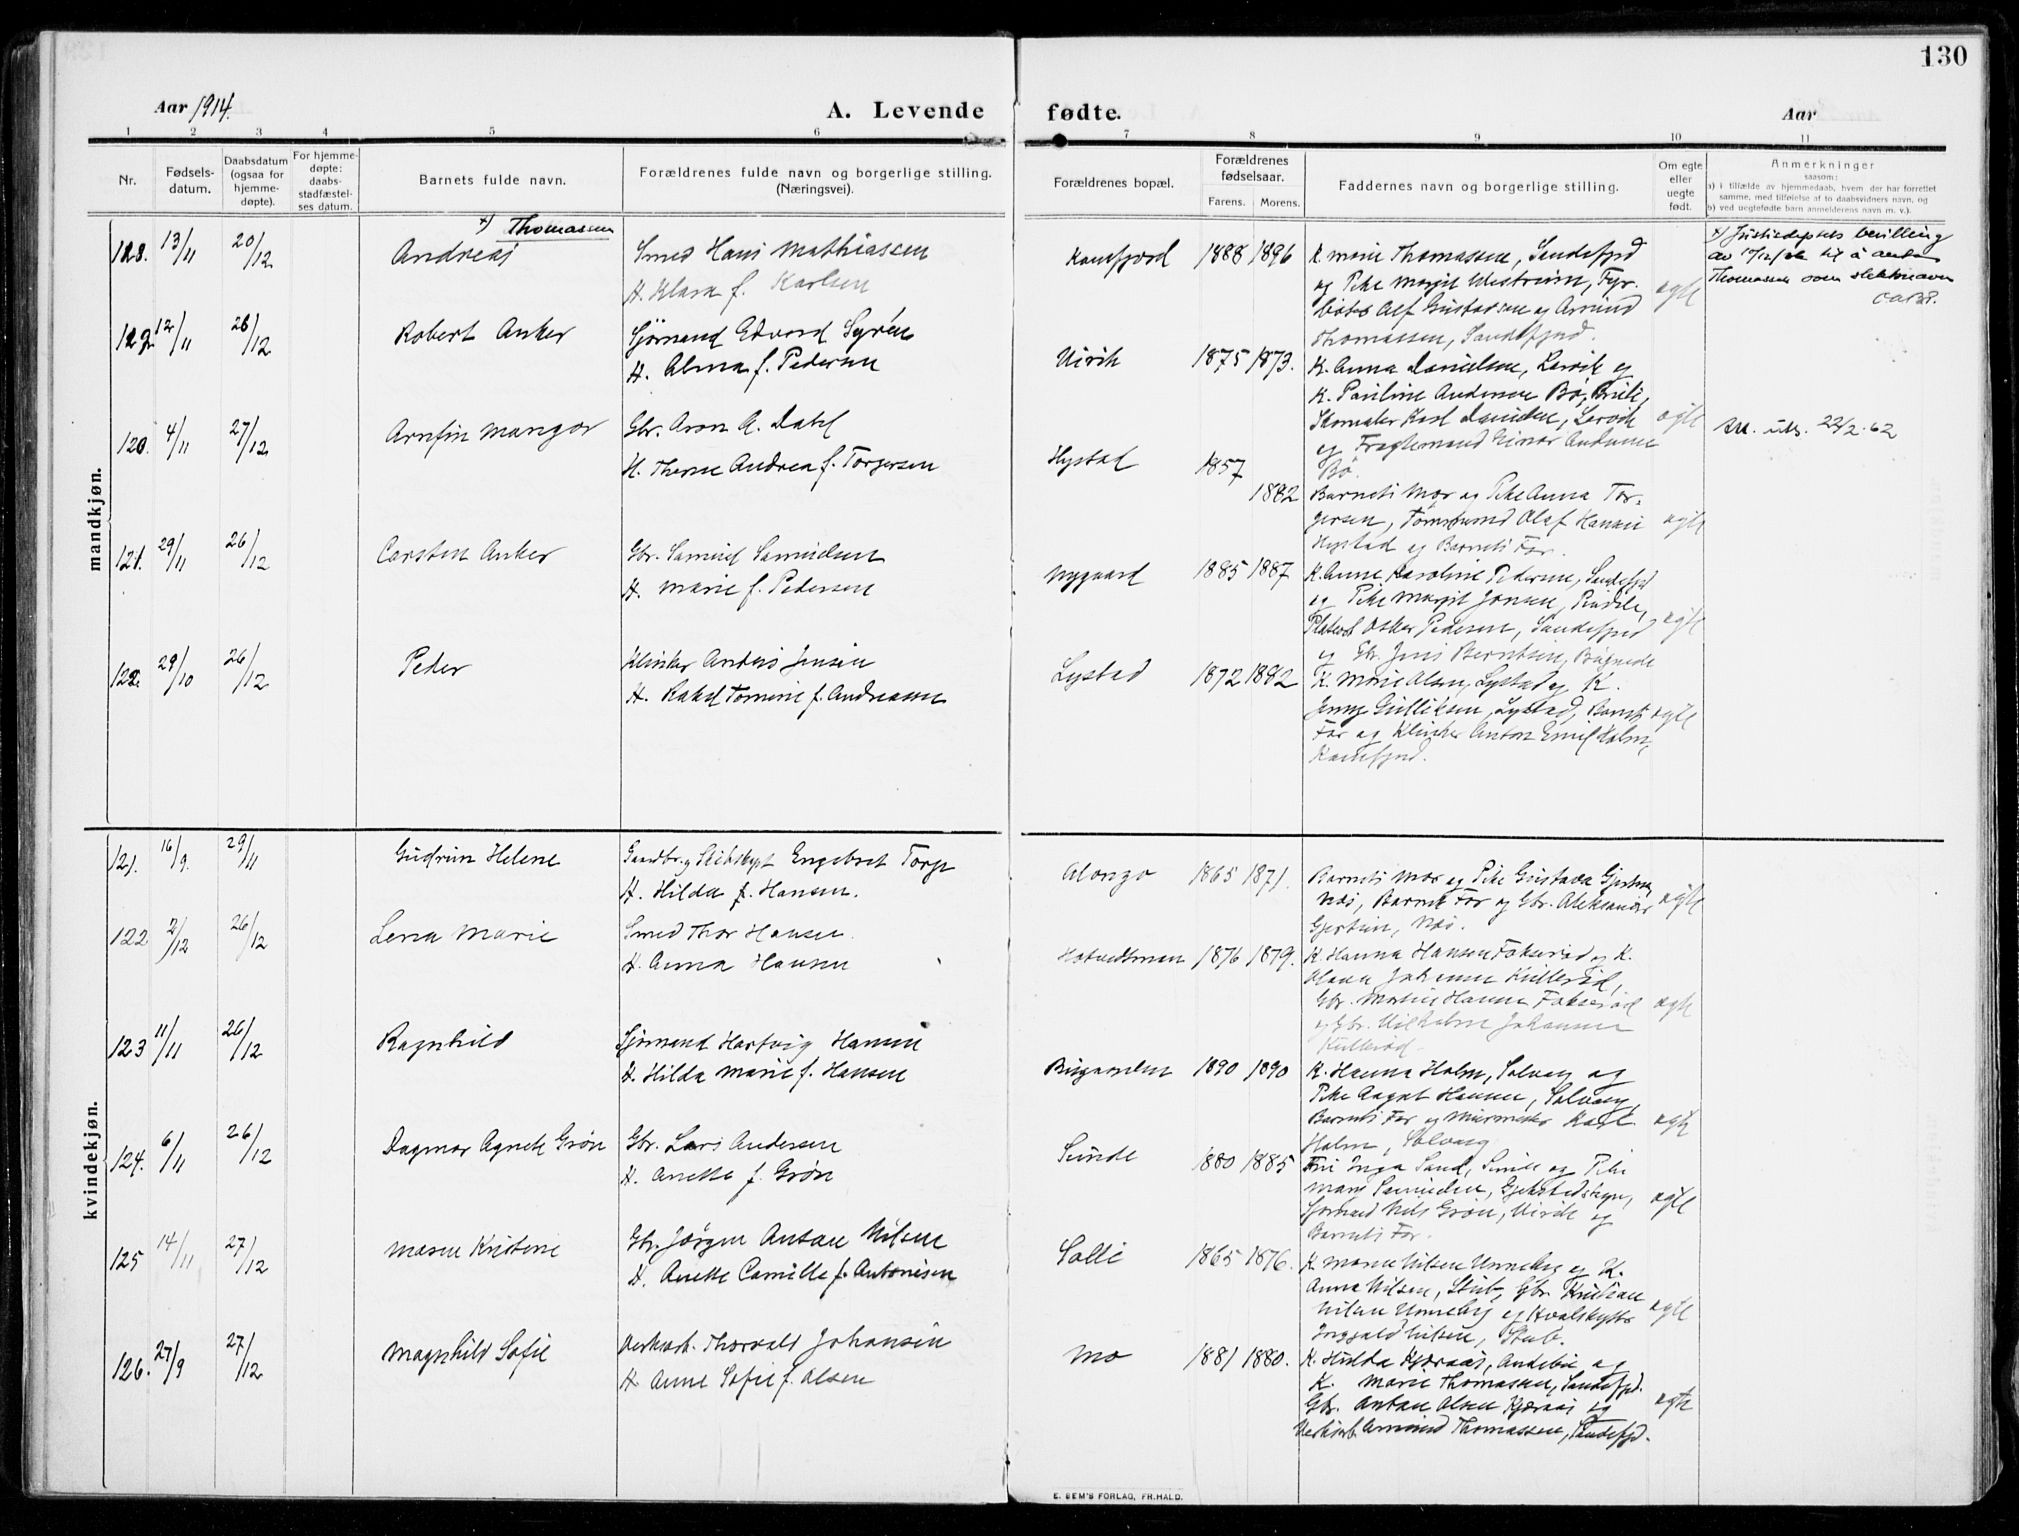 130
Aar 1914.
A. Levende fødte.
Aar
1 2 3 4 5 6 7 8 9 10 11
Nr.
Fødsels-
datum.
Daabsdatum
(ogsaa for
hjemme-
døpte).
For hjemme-
døpte:
daabs-
stadfæstel-
ses datum.
Barnets fulde navn.
Forældrenes fulde navn og borgerlige stilling.
(Næringsvei).
Forældrenes bopæl.
Forældrenes
fødselsaar.
Farens. Morens.
Faddernes navn og borgerlige stilling.
Om egte
eller
uegte
født.
Anmerkninger
saasom:
a) i tilfælde av hjemmedaab, hvem der har forrettet
samme, med tilføielse af to daabsvidners navn, og
b) ved uegtefødte barn anmelderens navn m. v.).
mandkjøn.
x) Thomassen
118. 13/11 20/12 Andreas Smed Hans Mathiassen
H. Klara f. Karlsen
1888 1896 K. Marie Thomassen, Sandefjord
og Pike Margit
Gustavsen og
Thomassen, Sandefjord.
egte
x) bevilling
Thomassen som slektsnavn
119. 12/11 26/12 Robert Anker Sjømand Edvard Syrén
H. Alma f. Pedersen
Virik 1875 1873. K. Anna Danielsen, Lervik og
K. Pauline Andersen Bø,
Karl Danielsen, Lervik
og Fragtemand Einar Andersen
Bø.
egte
120. 4/11 27/12 Arnfin Mangor Gbr. Aron A. Dahl
H. Therese Andrea f. Torgersen
Hystad 1857
1882 Barnets Mor og Pike Anna Tor-
gersen, Tømmermand Olaf Hansen
Hystad og Barnets Far.
egte
22/2.62
121. 29/11 26/12 Carsten Anker Gbr. Samuel Samuelsen
H. Marie f. Pedersen
Nygaard 1885 1887 K. Anne Karoline Pedersen, Sandefjord
og Pike Margit Jonsen,
Oskar Pedersen, Sandefjord
og Gbr. Jens Berntsen,
egte
122. 29/10 26/12 Peter Klinker Anders Jensen
H. Rakel Tomine f. Andreasen
Lystad 1872 1882 K. Marie Olsen, Lystad og K.
Jenny Gulliksen, Lystad, Barnets
Far og Klinker Anton Emil Holm,
egte
kvindekjøn.
121. 16/9. 29/11 Gudrun Helene Gaardbr. og Engebret Torp
H. Hilda f. Hansen.
1865 1871. Barnets Mor og Pike Gustava Gjertsen
Barnets Far og Gbr. Aleksander
Gjertsen,
egte
122 2/12 26/12 Lena Marie Smed Thor Hansen.
H. Anna Hansen
1876 1879. K. Hanna Hansen Fokserød og K.
Olava Johansen Kullerød,
Gbr. Martin Hansen Fokserød
og Gbr. Vilhelm Johansen
Kullerød.
egte
123 11/11 26/12 Ragnhild Sjømand Hartvig Hansen
H. Hilda Marie f. Hansen
1890 1890 K. Hanna Holm, Solvang og
Pike Hansen, Solvang,
Barnets Far og Murmester Karl
Holm, Solvang
egte
124. 6/11 26/12 Dagmar Agnete Grøn Gbr. Lars Andersen
H. Anette f. Grøn
Sunde 1880 1885 Fru Inga Sand, Sunde og Pike
Marie Samuelsen,
Nils Grøn, Virik og
Barnets Far.
egte
125 14/11 27/12 Maren Kristine Gbr. Jørgen Anton Nilsen
H. Anette Camille f. Antonisen
Solli 1865 1876. K. Maren Nilsen Unneberg og K.
Anna Nilsen, Stub, Gbr. Kristian
Nilsen Unneberg og Hvalskytter
Ingvald Nilsen, Stub.
egte
126. 27/9 27/12 Magnhild Sofie Verkarb. Thorvald Johansen
H. Anne Sofie f. Olsen
Mo 1881 1880. K. Hulda Kjæraas, Andebu og
K. Marie Thomassen, Sandefjd.
Gbr. Anton Olsen Kjæraas og
Verksarb. Amund Thomassen, Sandefjd.
egte
E. SEM'S FORLAG, FR.HALD.